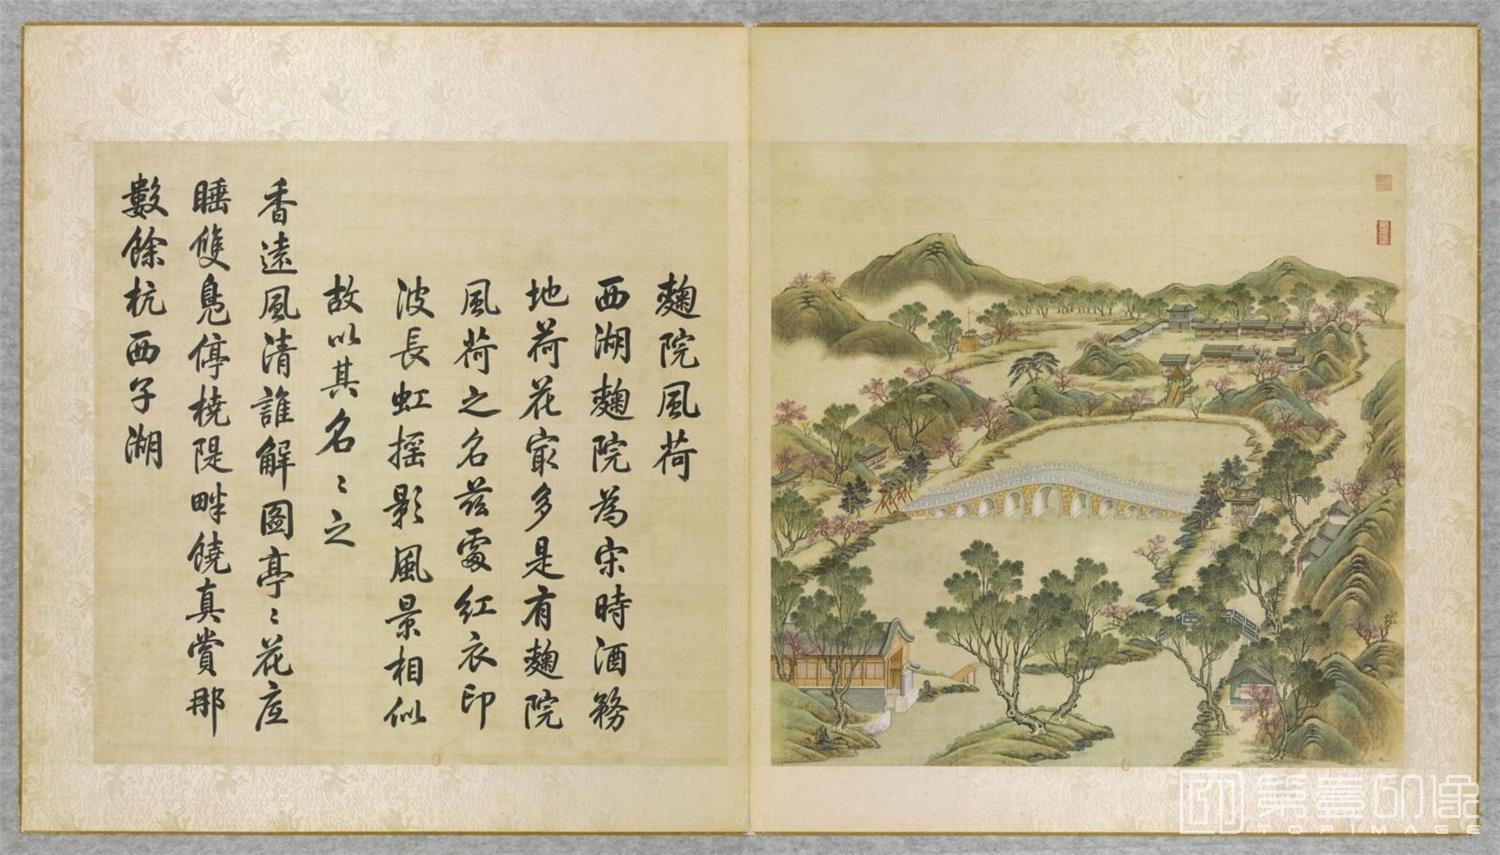 麯院風荷
西湖麯院為宋時酒務
地荷花㝡多是有麯院
風荷之名茲䖏紅衣印
波長虹搖影風景相似
故以其名名之
香遠風清誰解圖亭亭花底
睡雙鳧停橈隄畔饒真賞那
數餘杭西子湖
第壹印像
TOPIMAGE